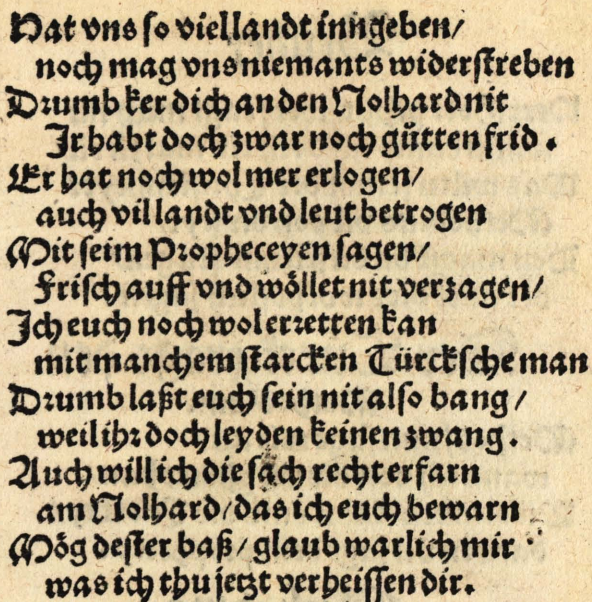 Hat vns so viel landt inngeben/
noch mag vns niemants widerstreben
Drumb ker dich an den Nolhard nit
Jr habt doch zwar noch gůtten frid.
Er hat noch wol mer erlogen/
auch vil landt vnd leut betrogen
Mit seim Propheceyen sagen/
Frisch auff vnd wöllet nit verzagen/
Jch euch noch wol erretten kan
mit manchem starcken Türcksche man
Drumb laßt euch sein nit also bang/
weil ihr doch leyden keinen zwang.
Auch will ich die sach recht erfarn
am Nolhard/das ich euch bewarn
Mög dester baß/glaub warlich mir
was ich thu jetzt verheissen dir.